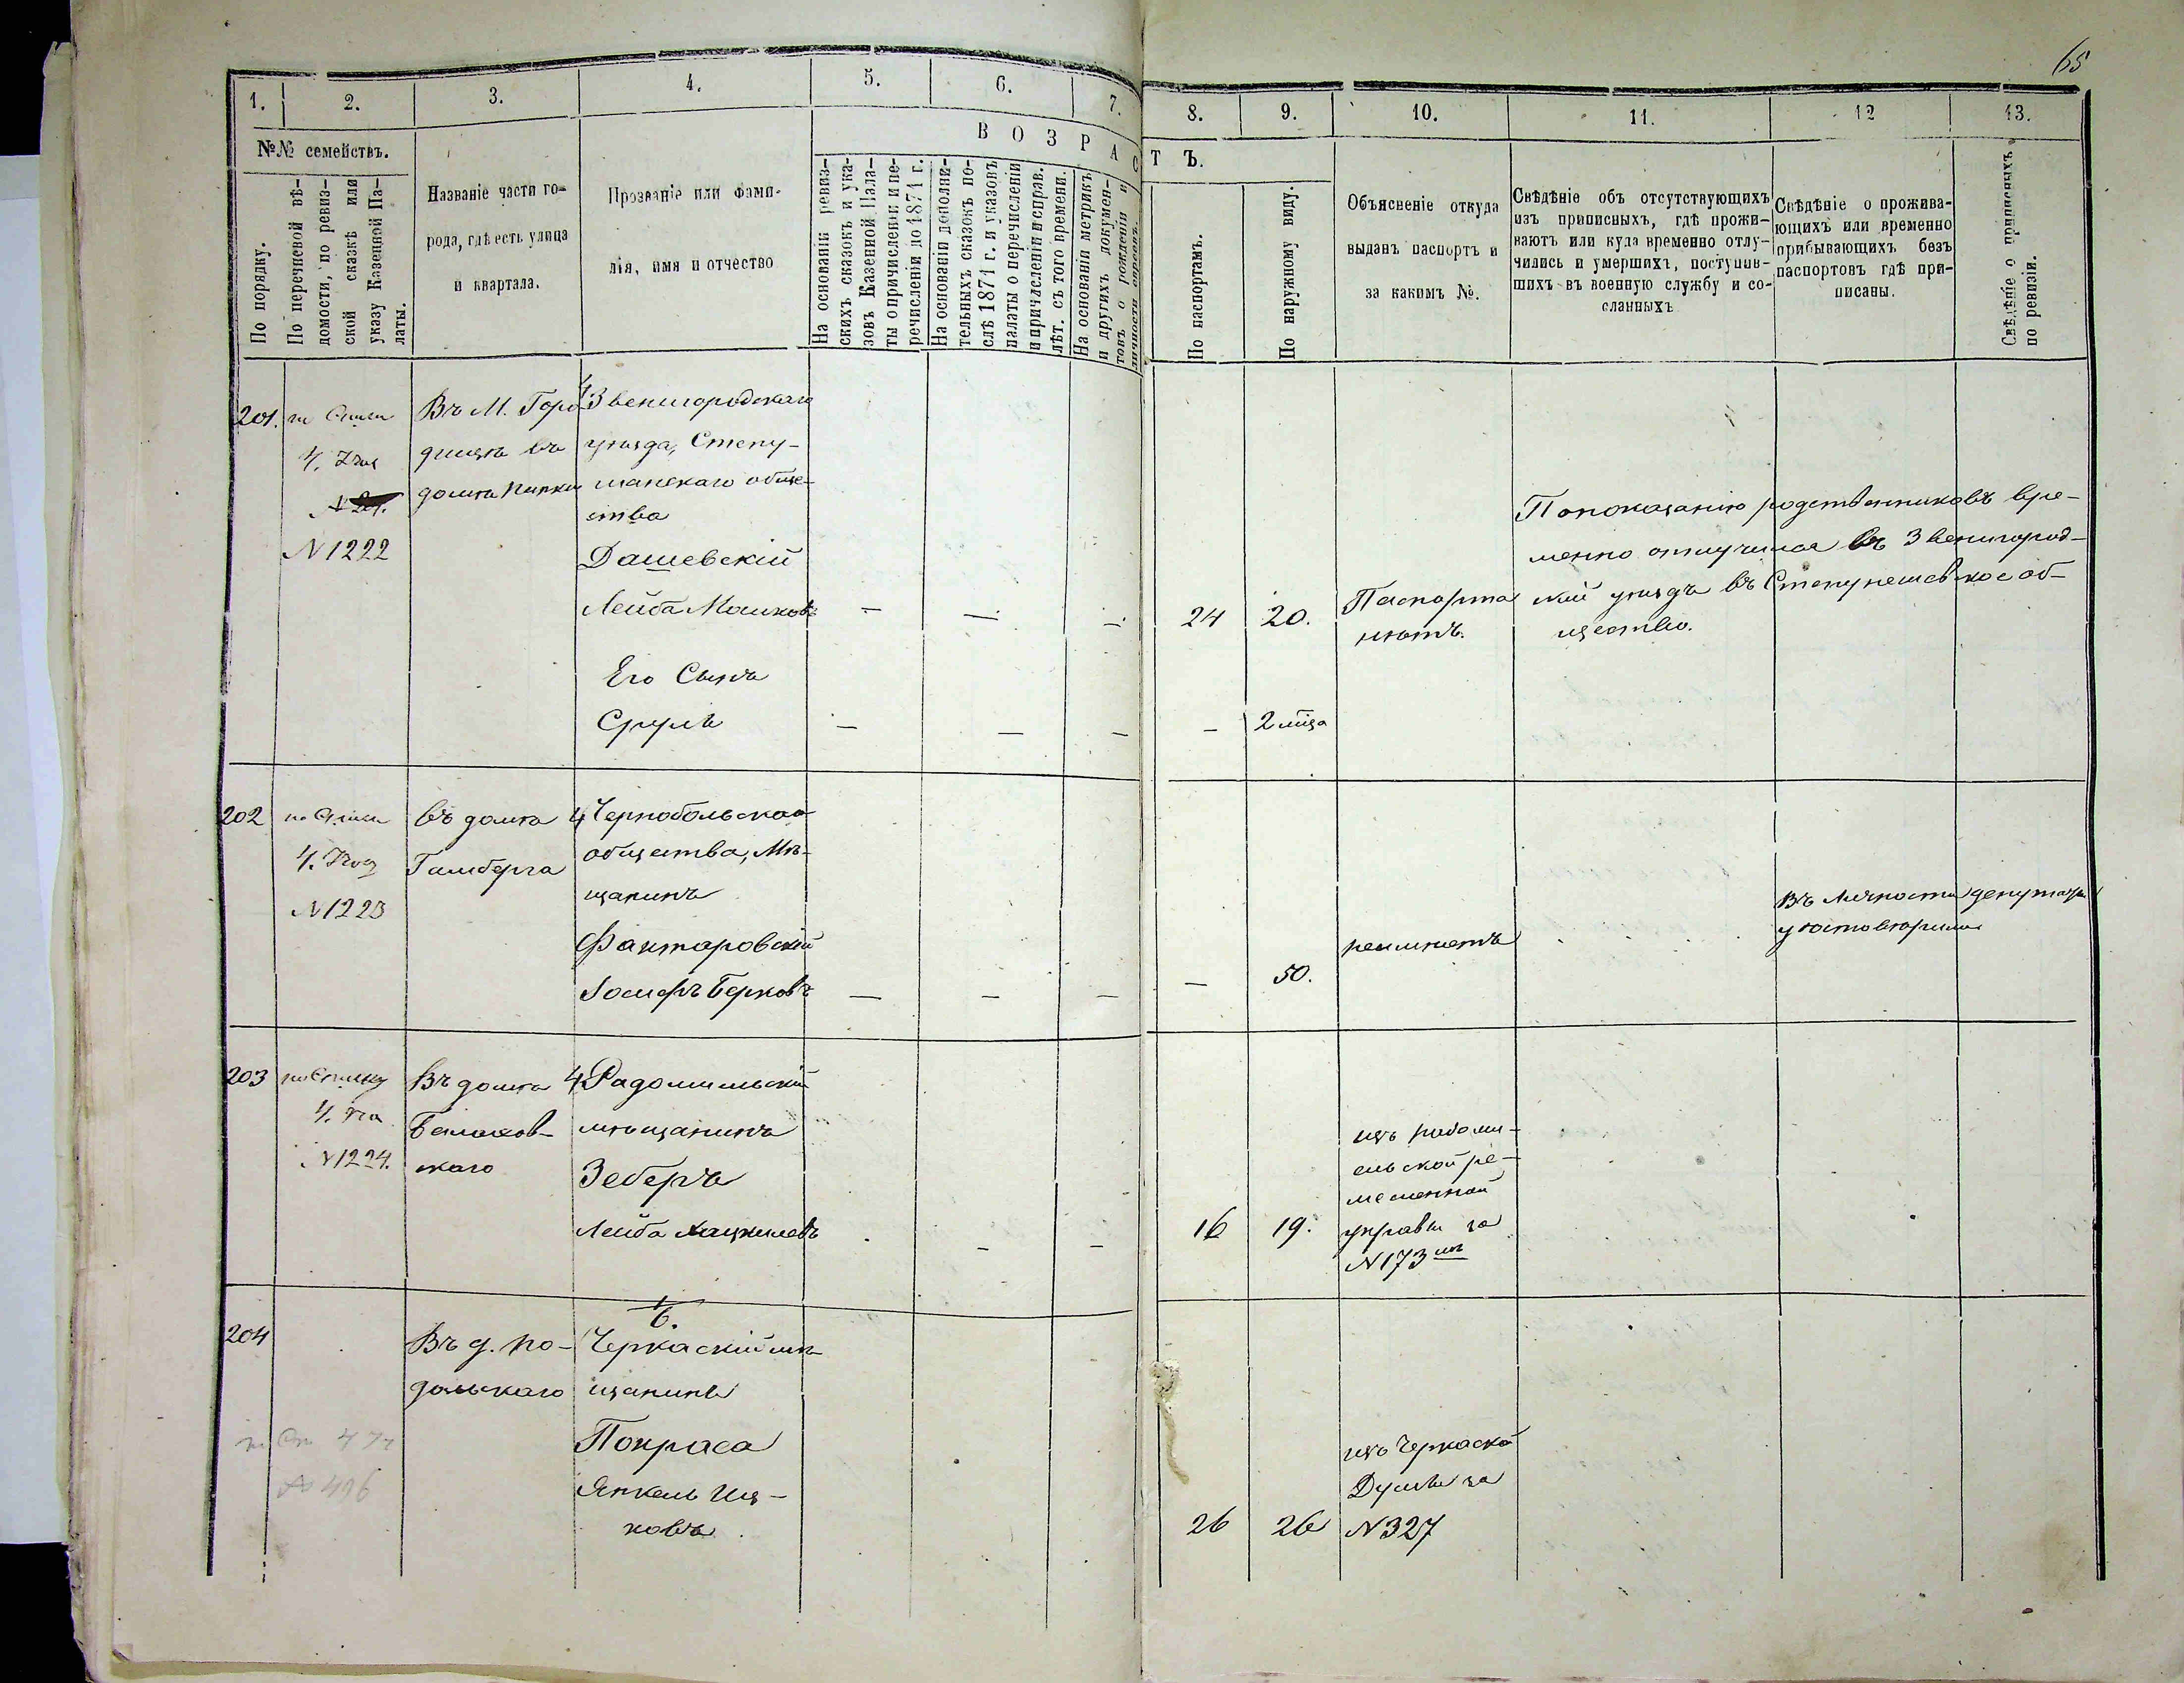 65
1. 2. 3. 4. 5. 6. 7. 8. 9. 10. 11. 12 13.
№№ семействъ.
По порядку.
По перечневой вѣ-
домости, по ревиз-
ской сказкѣ или
указу Казенной Па-
латы.
Названіе части го-
рода, гдѣ есть улица
и квартала.
Прозваніе или фами-
лія, имя и отчество
ВОЗРАСТЪ.
На основаніи ревиз-
скихъ сказокъ и ука-
зовъ Казенной Пала-
ты о причисленіи и пе-
речисленіи до 1871 г.
На основаніи дополни-
тельныхъ сказокъ по-
слѣ 1871 г. и указовъ
палаты о перечисленіи
и причисленіи исправ.
лѣт. съ того времени.
На основаніи метрикъ
и другихъ докумен-
товъ о рожденіи и
личности евреевъ.
По паспортамъ.
По наружному виду.
Объясненіе откуда
выданъ паспортъ и
за какимъ №.
Свѣдѣніе объ отсутствующихъ
изъ приписныхъ, гдѣ прожи-
ваютъ или куда временно отлу-
чились и умершихъ, поступив-
шихъ въ военную службу и со-
сланныхъ
Свѣдѣніе о прожива-
ющихъ или временно
прибывающихъ безъ
паспортовъ гдѣ при-
писаны.
Свѣдѣніе о приписныхъ
по ревизіи.
201.
N 1222
Въ М. Горо
дищѣ въ
домѣ
Звенигородскаго
уѣзда,
обще-
ства
Дашевскій
Лейба Машковъ — — — 24 20.
Паспорта
нѣтъ.
По показанію родственниковъ вре-
менно отлучился въ Звенигород-
скій уѣздъ въ об-
щество.
Его Сынъ
Сруль — — — — 2 мца
202
N 1223
въ домѣ
Гамберга
4 Чернобольскаго
общества, Мѣ-
щанинъ
Факторовскій
Іосифъ Берковъ — — — — 50.
неимѣетъ
Въ личности депутаты
удостовѣрили
203
N 1224.
Въ домѣ
скаго
4 Радомильскій
мѣщанинъ
Зеберъ
Лейба — — 16 19.
изъ радоми-
ельской ре-
месленной
управы за
N 173
204
Въ д. По-
дольскаго
6.
Черкаскій мѣ-
щанинъ
Покраса
Янкель Иц-
ковъ
26 26
изъ Черкаской
Думы за
N 327